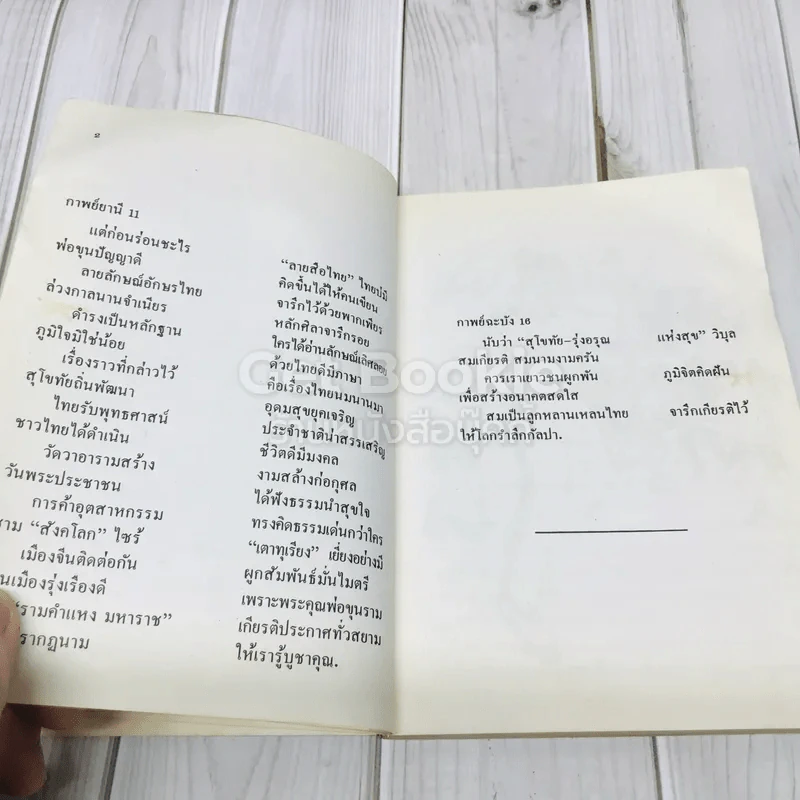 2
กาพย์ยานี 11
แต่ก่อนร่อนชะไร "ลายสือไทย" ไทยบ่มี
พ่อขุนปัญญาดี คิดขึ้นได้ให้คนเขียน
ลายลักษณ์อักษรไทย จารึกไว้ด้วยพากเพียร
ล่วงกาลนานจำเนียร หลักศิลาจารึกรอย
ดำรงเป็นหลักฐาน ใครได้อ่านลักษณ์เลิศลอย
ภูมิใจมิใช่น้อย ด้วยไทยดีมีภาษา
เรื่องราวที่กล่าวไว้ คือเรื่องไทยนมนานมา
สุโขทัยถิ่นพัฒนา อุดมสุขยุคเจริญ
ไทยรับพุทธศาสน์ ประจำชาติน่าสรรเสริญ
ชาวไทยได้ดำเนิน ชีวิตดีมีมงคล
วัดวาอารามสร้าง งามสล้างก่อกุศล
วันพระประชาชน ได้ฟังธรรมนำสุขใจ
การค้าอุตสาหกรรม ทรงคิดธรรมเด่นกว่าใคร
"สังคโลก" ไซร้ "เตาทุเรียง" เยี่ยงอย่างมี
เมืองจีนติดต่อกัน ผูกสัมพันธ์มั่นไมตรี
เมืองรุ่งเรืองดี เพราะพระคุณพ่อขุนราม
"รามคำแหง มหาราช" เกียรติประกาศทั่วสยาม
รากฏนาม ให้เรารู้บูชาคุณ.
กาพย์ฉะบัง 16
นับว่า "สุโขทัย-รุ่งอรุณ แห่งสุข" วิบุล
สมเกียรติ สมนามงามครัน
ควรเราเยาวชนผูกพัน ภูมิจิตคิดฝัน
เพื่อสร้างอนาคตสดใส
สมเป็นลูกหลานเหลนไทย จารึกเกียรติไว้
ให้โลกรำลึกกัลปา.
Get Bookie
ร้านหนังสือบุ๊คกี้